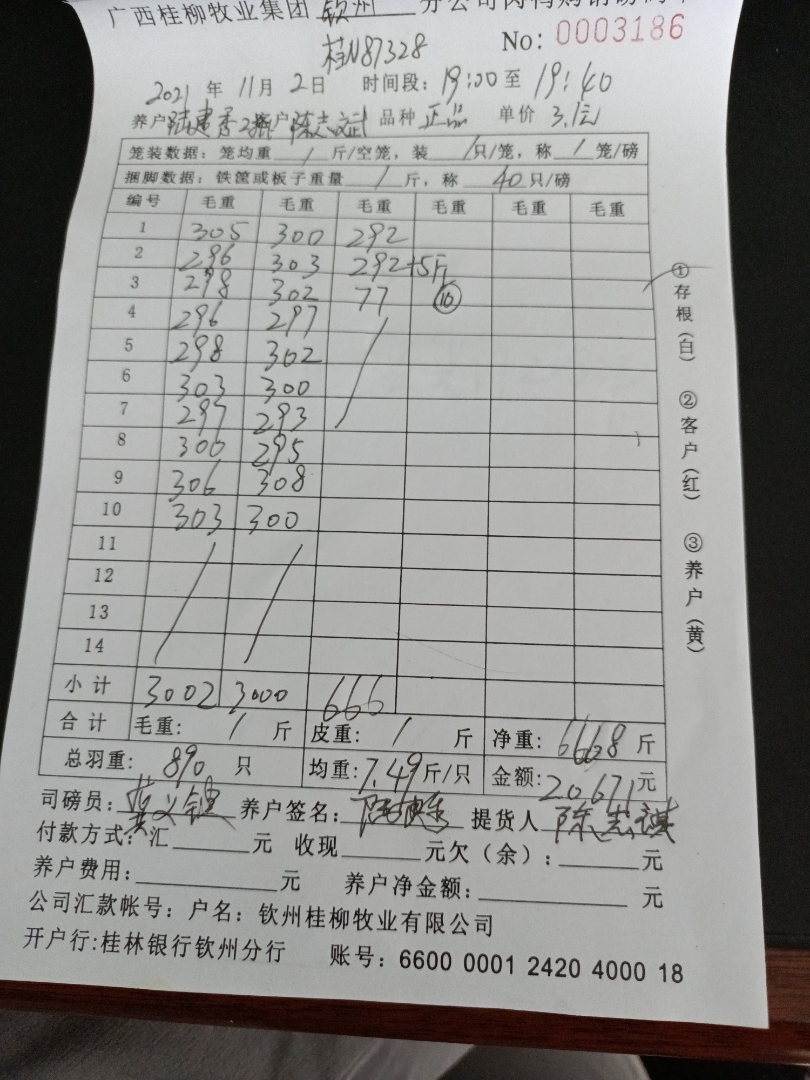 广西桂柳牧业集团 钦州 分公司肉鸭购销磅码单
桂N87328 No: 0003186
2021 年 11 月 2 日 时间段: 19:00 至 19:40
养户 陆建秀2批 客户 陈志斌 品种 正品 单价 3.1元
笼装数据: 笼均重 / 斤/空笼, 装 / 只/笼, 称 / 笼/磅
捆脚数据: 铁筐或板子重量 / 斤, 称 40 只/磅
编号 毛重 毛重 毛重 毛重 毛重 毛重
1 305 300 292
2 296 303 292+5斤
3 298 302 77 ⑩
4 296 297 /
5 298 302
6 303 300
7 297 293
8 300 295
9 306 308
10 303 300
11 / /
12
13
14
小计 3002 3000 666
合计 毛重: / 斤 皮重: / 斤 净重: 6668 斤
总羽重: 890 只 均重: 7.49 斤/只 金额: 20671 元
司磅员: 养户签名: 提货人
付款方式: 汇 元 收现 元欠(余): 元
养户费用: 元 养户净金额: 元
公司汇款帐号: 户名: 钦州桂柳牧业有限公司
开户行:桂林银行钦州分行 账号: 6600 0001 2420 4000 18
①存根(白) ②客户(红) ③养户(黄)